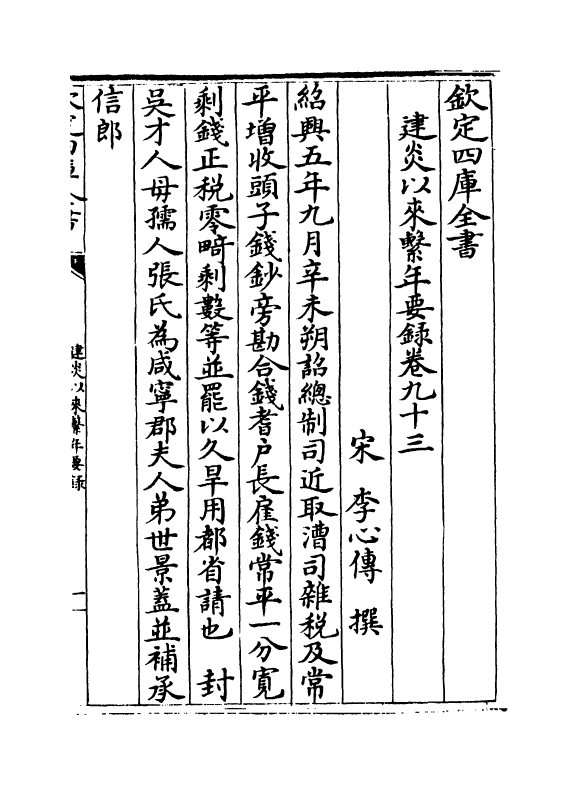 欽定四庫全書
建炎以來繫年要錄卷九十三
宋 李心傳 撰
紹興五年九月辛未朔詔總制司近取漕司雜税及常
平增收頭子錢鈔旁勘合錢耆户長雇錢常平一分寛
剩錢正税零畸剩數等並罷以久旱用都省請也 封
吳才人母孺人張氏為咸寧郡夫人弟世景蓋並補承
信郎
建炎以來繫年要録
一